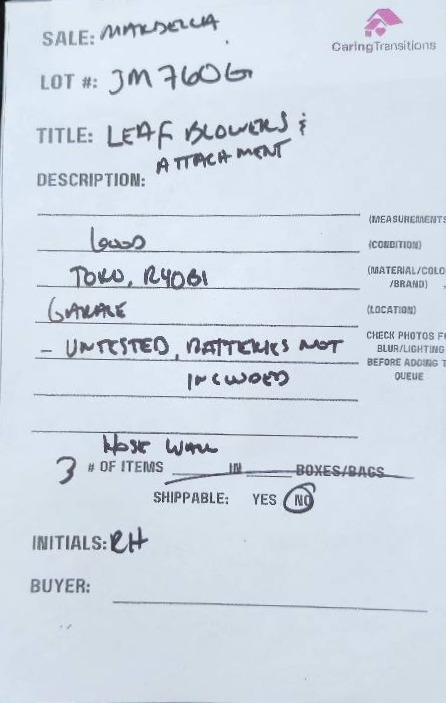 SALE: MARBELLA
CaringTransitions
LOT #: JM760G
TITLE: LEAF BLOWERS &
ATTACHMENT
DESCRIPTION:
(MEASUREMENTS
GOOD (CONDITION)
TORO, RYOBI (MATERIAL/COLO
/BRAND)
GARAGE (LOCATION)
- UNTESTED, BATTERIES NOT
INCLUDED
CHECK PHOTOS F
BLUR/LIGHTING
BEFORE ADDING T
QUEUE
HOSE WALL
3 # OF ITEMS ____ IN ____ BOXES/BAGS
SHIPPABLE: YES NO
INITIALS: RH
BUYER: